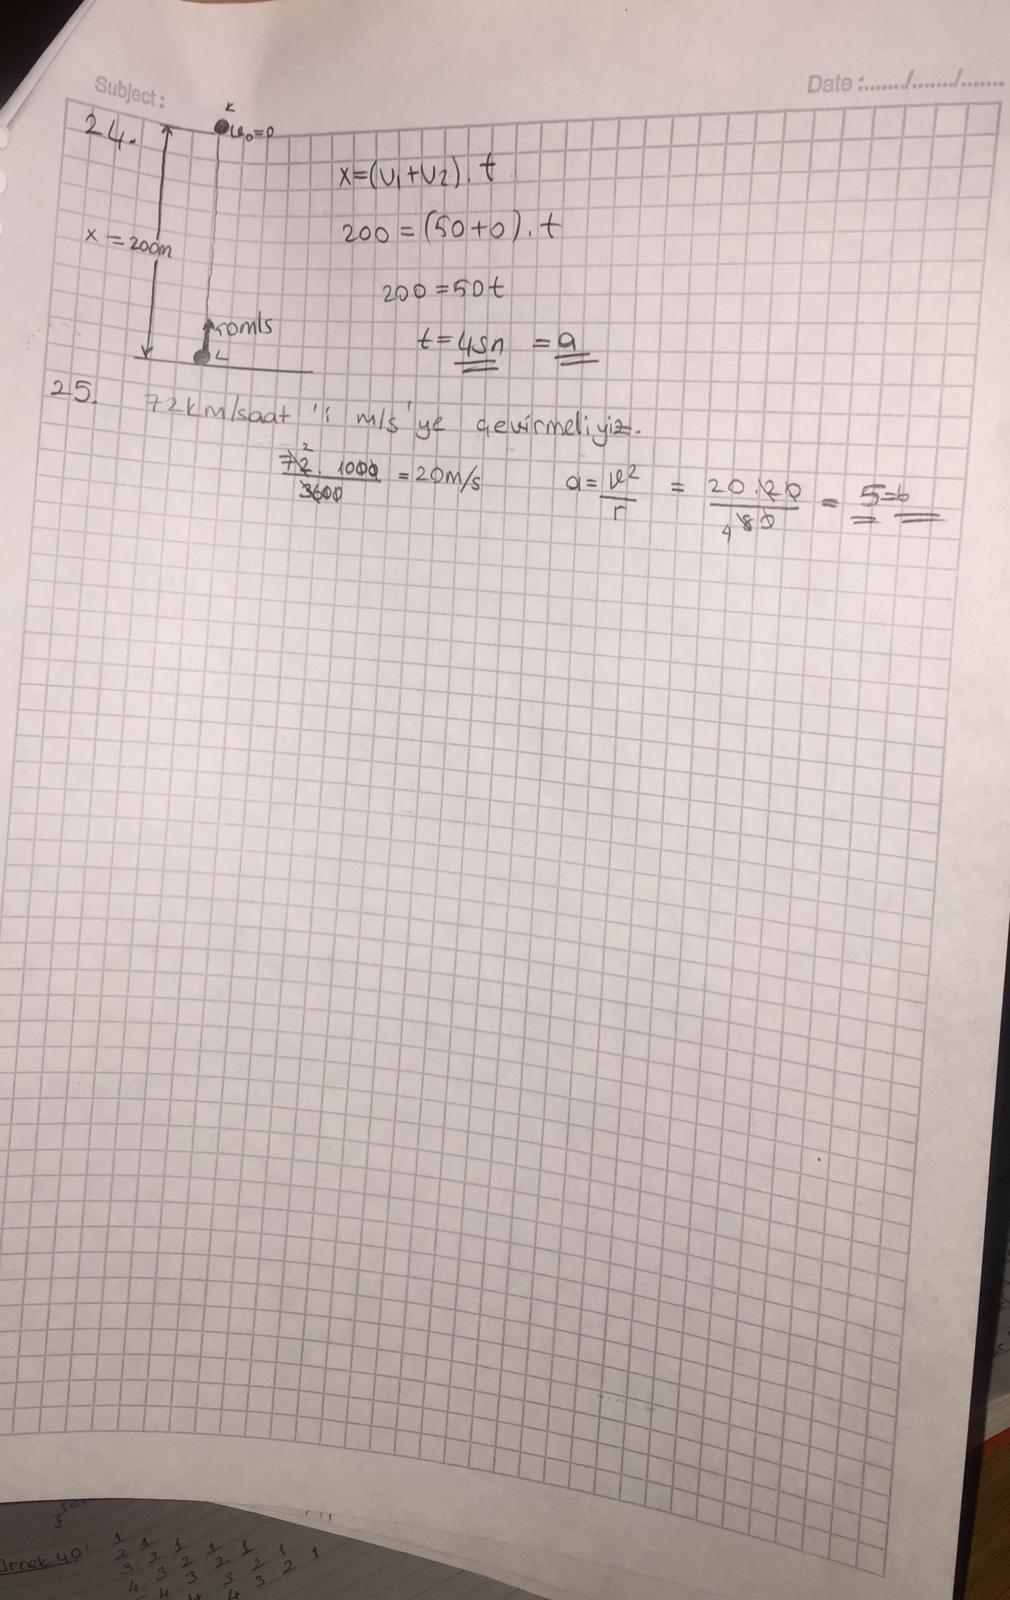 Subject:
Date :....../....../......
24.
K
v₀=0
x = 200m
L
x=(v1+v2).t
200 = (50+0).t
200 = 50t
t = 4sn = a
25. 72km/saat 'i m/s'ye çevirmeliyiz.
2
72. 1000 / 3600 = 20m/s
a = v² / r = 20.20 / 80 = 5=b
4
Örnek 40: